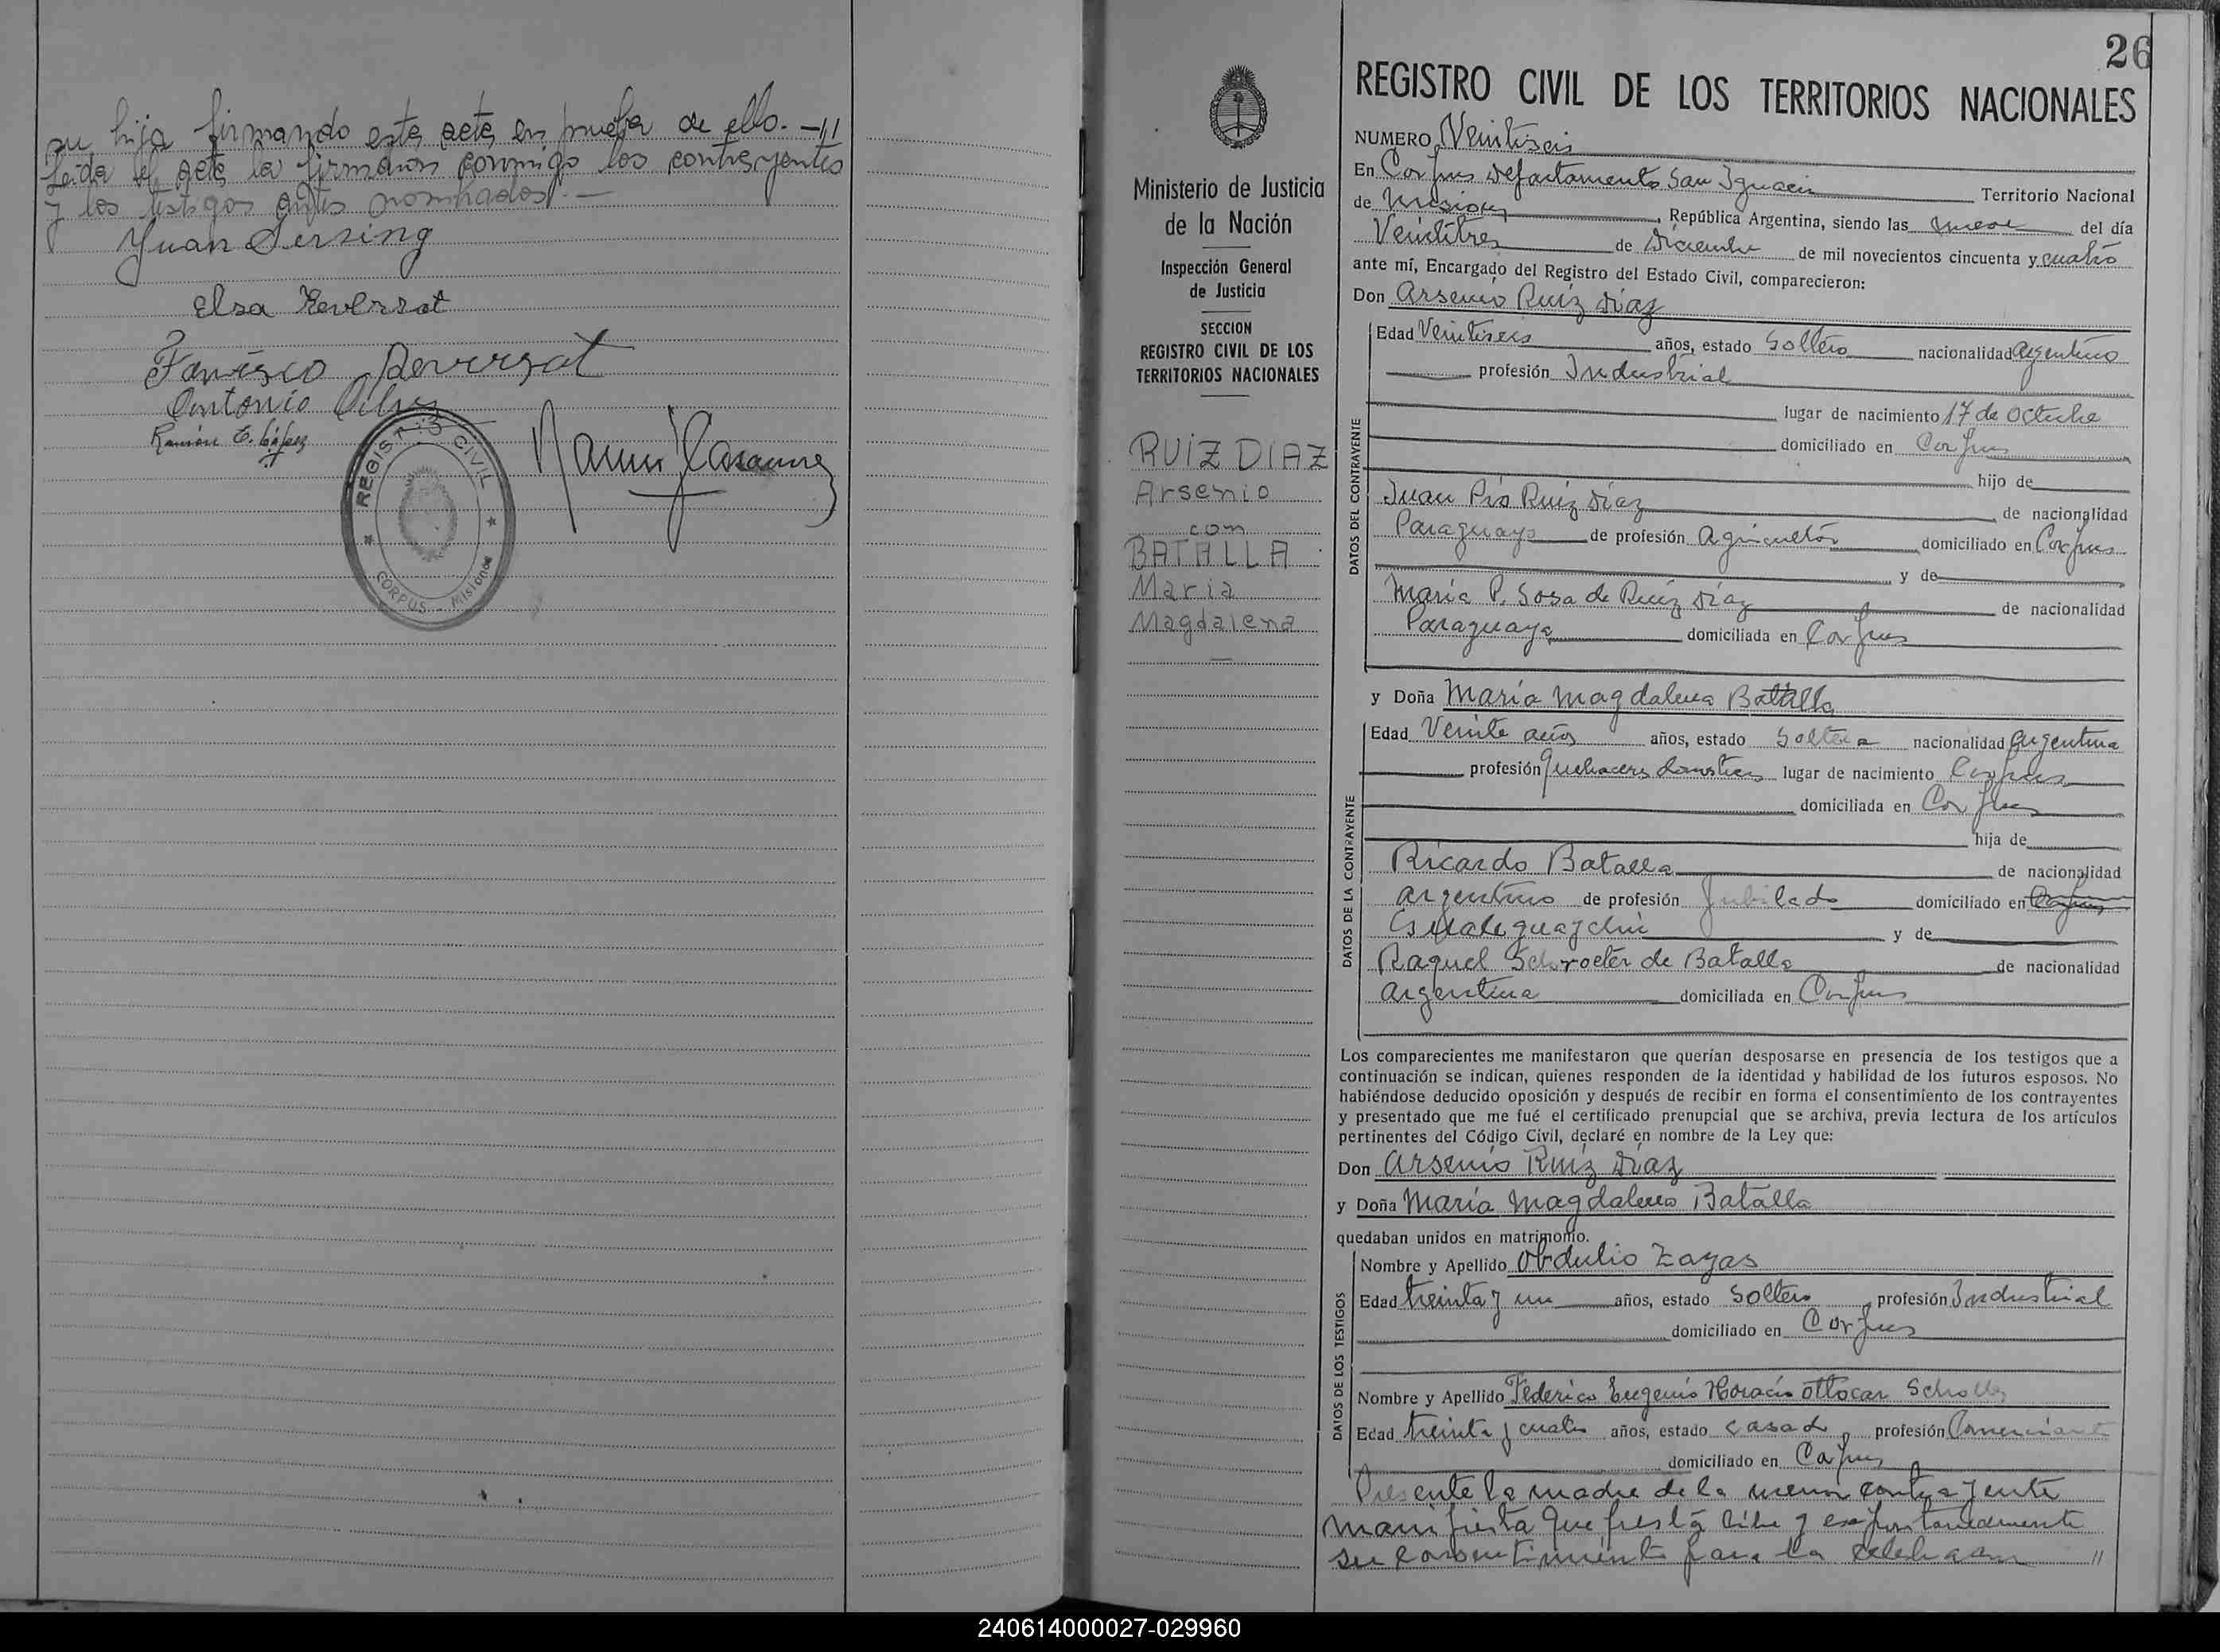 su hija firmando esta acta en prueba de ello. —//
Leida el acta la firmaron conmigo los contrayentes
y los testigos antes nombrados. —
Juan Dersing
Elsa Reversat
Reversat
Antonio
Ramón E. López
REGISTRO CIVIL
CORPUS - Misiones
26
REGISTRO CIVIL DE LOS TERRITORIOS NACIONALES
Ministerio de Justicia
de la Nación
Inspección General
de Justicia
SECCION
REGISTRO CIVIL DE LOS
TERRITORIOS NACIONALES
RUIZ DIAZ
Arsenio
con
BATALLA
Maria
Magdalena
NUMERO Veintiseis
En Corpus Departamento San Ignacio Territorio Nacional
de Misiones, República Argentina, siendo las nueve del día
Veintitres de Diciembre de mil novecientos cincuenta y cuatro
ante mí, Encargado del Registro del Estado Civil, comparecieron:
Don Arsenio Ruiz Díaz
DATOS DEL CONTRAYENTE
Edad Veintiseis años, estado Soltero nacionalidad argentino
profesión Industrial
lugar de nacimiento 17 de Octubre
domiciliado en Corpus
hijo de
Juan Pío Ruiz Díaz de nacionalidad
Paraguayo de profesión Agricultor domiciliado en Corpus
y de
María P. Sosa de Ruiz Díaz de nacionalidad
Paraguaya domiciliada en Corpus
y Doña María Magdalena Batalla
DATOS DE LA CONTRAYENTE
Edad Veinte años años, estado Soltera nacionalidad argentina
profesión Quehaceres domesticos lugar de nacimiento Corpus
domiciliada en Corpus
hija de
Ricardo Batalla de nacionalidad
argentino de profesión Jubilado domiciliado en Corpus
y de
Raquel Schroeter de Batalla de nacionalidad
argentina domiciliada en Corpus
Los comparecientes me manifestaron que querían desposarse en presencia de los testigos que a
continuación se indican, quienes responden de la identidad y habilidad de los futuros esposos. No
habiéndose deducido oposición y después de recibir en forma el consentimiento de los contrayentes
y presentado que me fué el certificado prenupcial que se archiva, previa lectura de los artículos
pertinentes del Código Civil, declaré en nombre de la Ley que:
Don Arsenio Ruiz Díaz
y Doña María Magdalena Batalla
quedaban unidos en matrimonio.
DATOS DE LOS TESTIGOS
Nombre y Apellido Obdulio Zayas
Edad treinta y un años, estado Soltero, profesión Industrial
domiciliado en Corpus
Nombre y Apellido Federico Eugenio Horacio Ottocar
Edad treinta y cuatro años, estado casado, profesión Comerciante
domiciliado en Corpus
Presente la madre de la menor contrayente
manifiesta que presta libre y espontaneamente
su consentimiento para la celebracion //
240614000027-029960